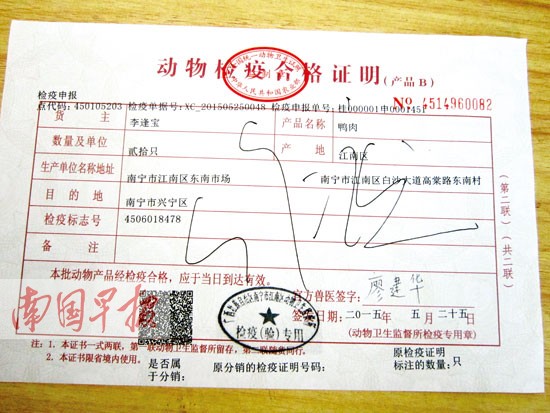 动物检疫合格证明(产品B)
检疫申报
点代码: 450105203 检疫申报单号: 桂000001申000145
No 4514960082
货主 李逢宝 产品名称 鸭肉
数量及单位 贰拾只 产地 江南区
生产单位名称地址 南宁市江南区东南市场 南宁市江南区白沙大道高棠路东南村
目的地 南宁市兴宁区
检疫标志号 4506018478
备注
本批动物产品经检疫合格,应于当日到达有效。
官方兽医签字: 廖建华
签发日期: 二0一五年 五月二十五
(动物卫生监督所检疫专用章)
检疫(验)专用
(第二联)(共二联)
南国早报
注: 1. 本证书一式两联, 第一联动物卫生监督所留存, 第二联随货同行。
2. 本证书限省境内使用。
是否属于分销: 原分销的检疫证明号码:
原检疫证明标注的数量: 只